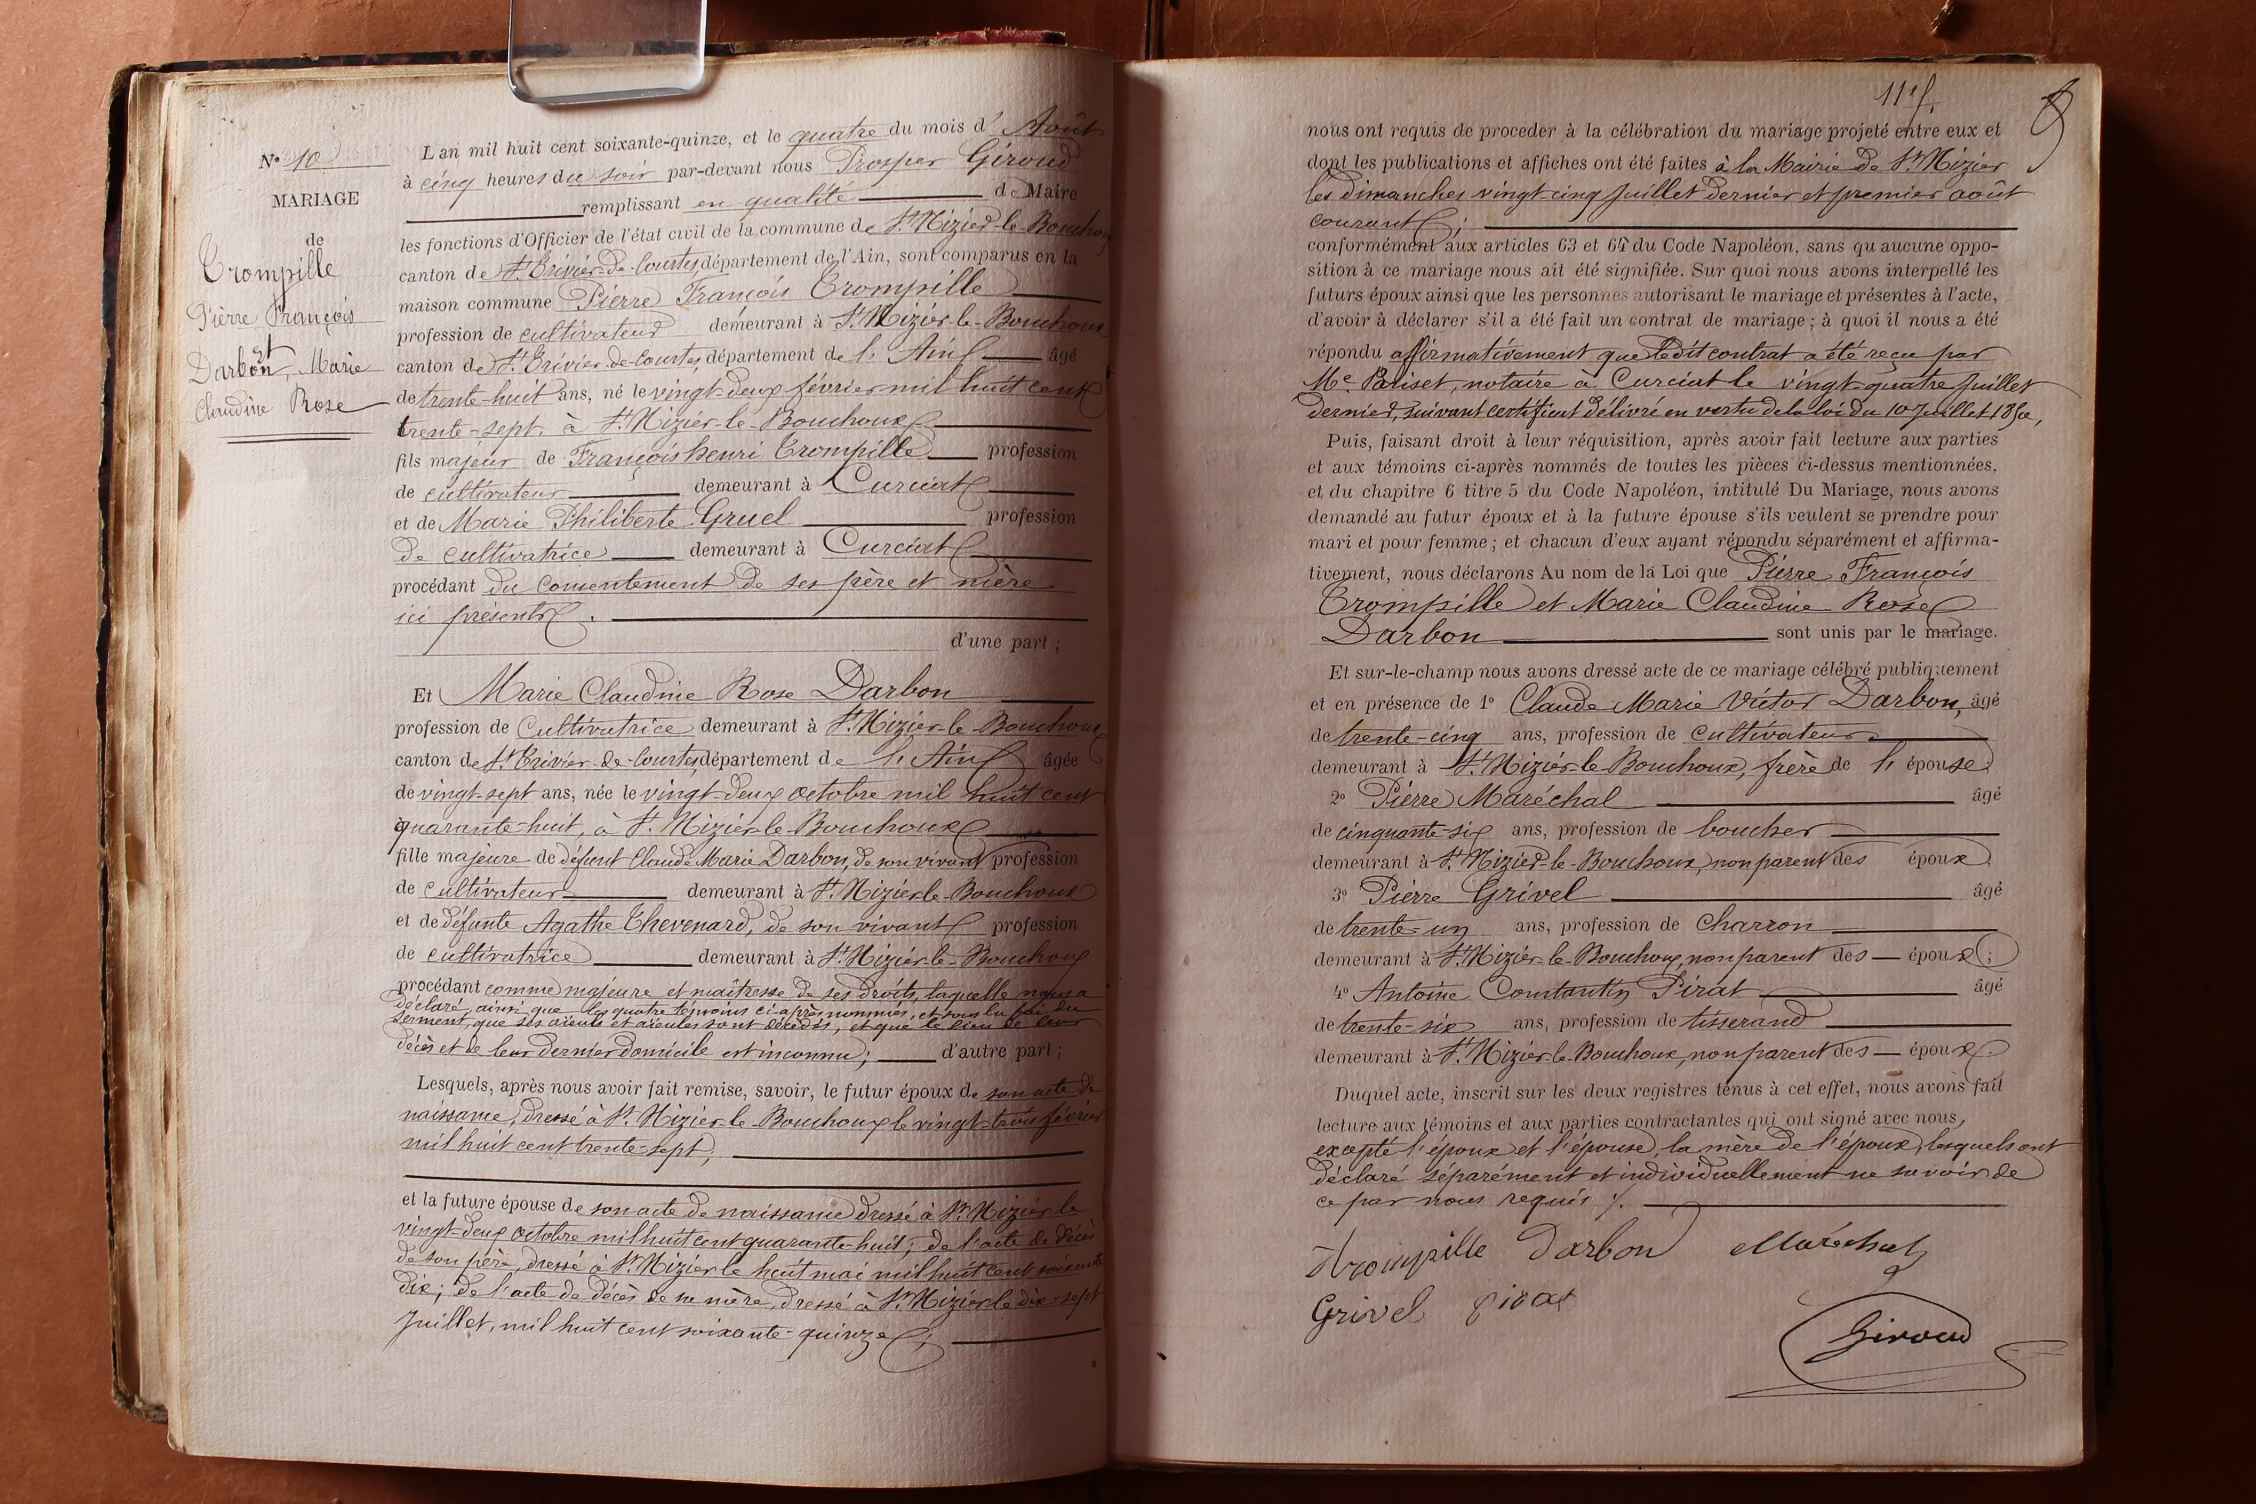 N° 10
MARIAGE
de
Trompille
Pierre François
et
Darbon, Marie
Claudine Rose
L an mil huit cent soixante-quinze, et le quatre du mois d' Août
à cinq heures du soir par-devant nous Prosper Giroud
remplissant en qualité de Maire
les fonctions d'Officier de l'état civil de la commune de St. Nizier-le-Bouchoux
canton de St. Trivier-de-Courtes, département de l'Ain, sont comparus en la
maison commune Pierre François Trompille
profession de cultivateur demeurant à St. Nizier-le-Bouchoux
canton de St. Trivier-de-Courtes, département de l'Ain âgé
de trente-huit ans, né le vingt-deux février mil huit cent
trente-sept, à St. Nizier-le-Bouchoux
fils majeur de François henri Trompille profession
de cultivateur demeurant à Curciat
et de Marie Philiberte Gruel profession
de cultivatrice demeurant à Curciat
procédant du consentement de ses père et mère
ici présents.
d'une part ;
Et Marie Claudine Rose Darbon
profession de Cultivatrice demeurant à St. Nizier-le-Bouchoux
canton de St. Trivier-de-Courtes, département de l'Ain âgée
de vingt-sept ans, née le vingt-deux octobre mil huit cent
quarante-huit, à St. Nizier-le-Bouchoux
fille majeure de défunt Claude Marie Darbon, de son vivant profession
de cultivateur demeurant à St. Nizier-le-Bouchoux
et de défunte Agathe Thevenard, de son vivant profession
de cultivatrice demeurant à St. Nizier-le-Bouchoux
procédant comme majeure et maîtresse de ses droits, laquelle nous a
déclaré, ainsi que les quatre témoins ci-après nommés, et sous la foi du
serment, que ses aïeuls et aïeules sont décédés, et que le lieu de leur
décès et de leur dernier domicile est inconnu ; d'autre part ;
Lesquels, après nous avoir fait remise, savoir, le futur époux de son acte de
naissance, dressé à St. Nizier-le-Bouchoux le vingt-trois février
mil huit cent trente-sept ;
et la future épouse de son acte de naissance dressé à St. Nizier le
vingt-deux octobre mil huit cent quarante-huit ; de l'acte de décès
de son père, dressé à St. Nizier le huit mai mil huit cent soixante
dix ; de l'acte de décès de sa mère, dressé à St. Nizier le dix-sept
Juillet, mil huit cent soixante-quinze ;
nous ont requis de proceder à la célébration du mariage projeté entre eux et
dont les publications et affiches ont été faites à la Mairie de St. Nizier
les dimanches vingt-cinq Juillet dernier et premier août
courant ;
conformément aux articles 63 et 64 du Code Napoléon, sans qu aucune oppo-
sition à ce mariage nous ait été signifiée. Sur quoi nous avons interpellé les
futurs époux ainsi que les personnes autorisant le mariage et présentes à l'acte,
d'avoir à déclarer s'il a été fait un contrat de mariage ; à quoi il nous a été
répondu affirmativement que ledit contrat a été reçu par
Me. Pariset, notaire à Curciat le vingt-quatre Juillet
dernier, suivant certificat délivré en vertu de la loi du 10 Juillet 1850,
Puis, faisant droit à leur réquisition, après avoir fait lecture aux parties
et aux témoins ci-après nommés de toutes les pièces ci-dessus mentionnées,
et du chapitre 6 titre 5 du Code Napoléon, intitulé Du Mariage, nous avons
demandé au futur époux et à la future épouse s'ils veulent se prendre pour
mari et pour femme ; et chacun d'eux ayant répondu séparément et affirma-
tivement, nous déclarons Au nom de la Loi que Pierre François
Trompille et Marie Claudine Rose
Darbon sont unis par le mariage.
Et sur-le-champ nous avons dressé acte de ce mariage célébré publiquement
et en présence de 1° Claude Marie Victor Darbon, âgé
de trente-cinq ans, profession de cultivateur
demeurant à St. Nizier-le-Bouchoux, frère de l' épouse
2° Pierre Maréchal âgé
de cinquante-six ans, profession de boucher
demeurant à St. Nizier-le-Bouchoux, non parent des époux
3° Pierre Grivel âgé
de trente-un ans, profession de charron
demeurant à St. Nizier-le-Bouchoux, non parent des époux ;
4° Antoine Constantin Pirat âgé
de trente-six ans, profession de tisserand
demeurant à St. Nizier-le-Bouchoux, non parent des époux
Duquel acte, inscrit sur les deux registres tenus à cet effet, nous avons fait
lecture aux témoins et aux parties contractantes qui ont signé avec nous,
excepté l'époux et l'épouse, la mère de l'époux, lesquels ont
déclaré séparément et individuellement ne savoir de
ce par nous requis ;.
trompille Darbon Maréchal
Grivel pirat
Giroud